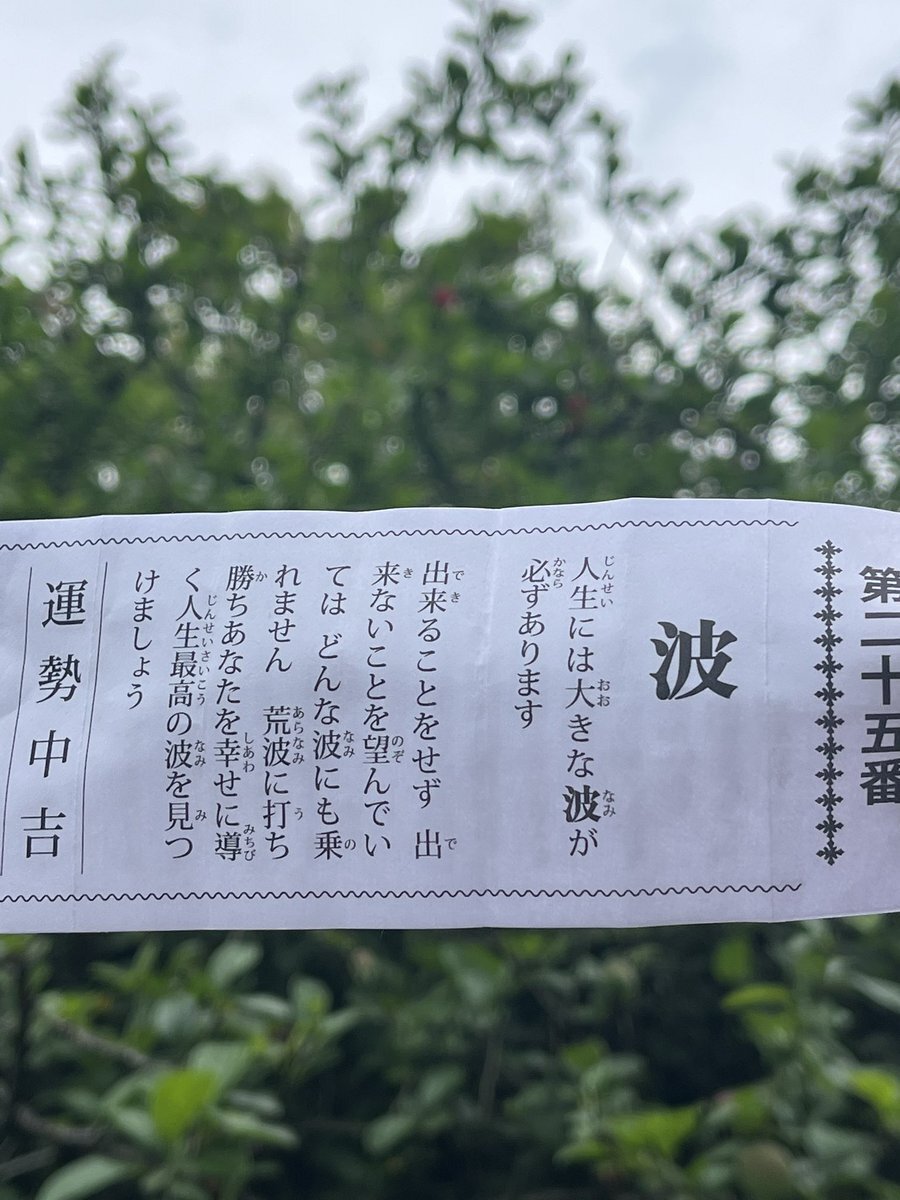 第二十五番
波
人生には大きな波が
必ずあります
出来ることをせず 出
来ないことを望んでい
ては どんな波にも乗
れません 荒波に打ち
勝ちあなたを幸せに導
く人生最高の波を見つ
けましょう
運勢中吉